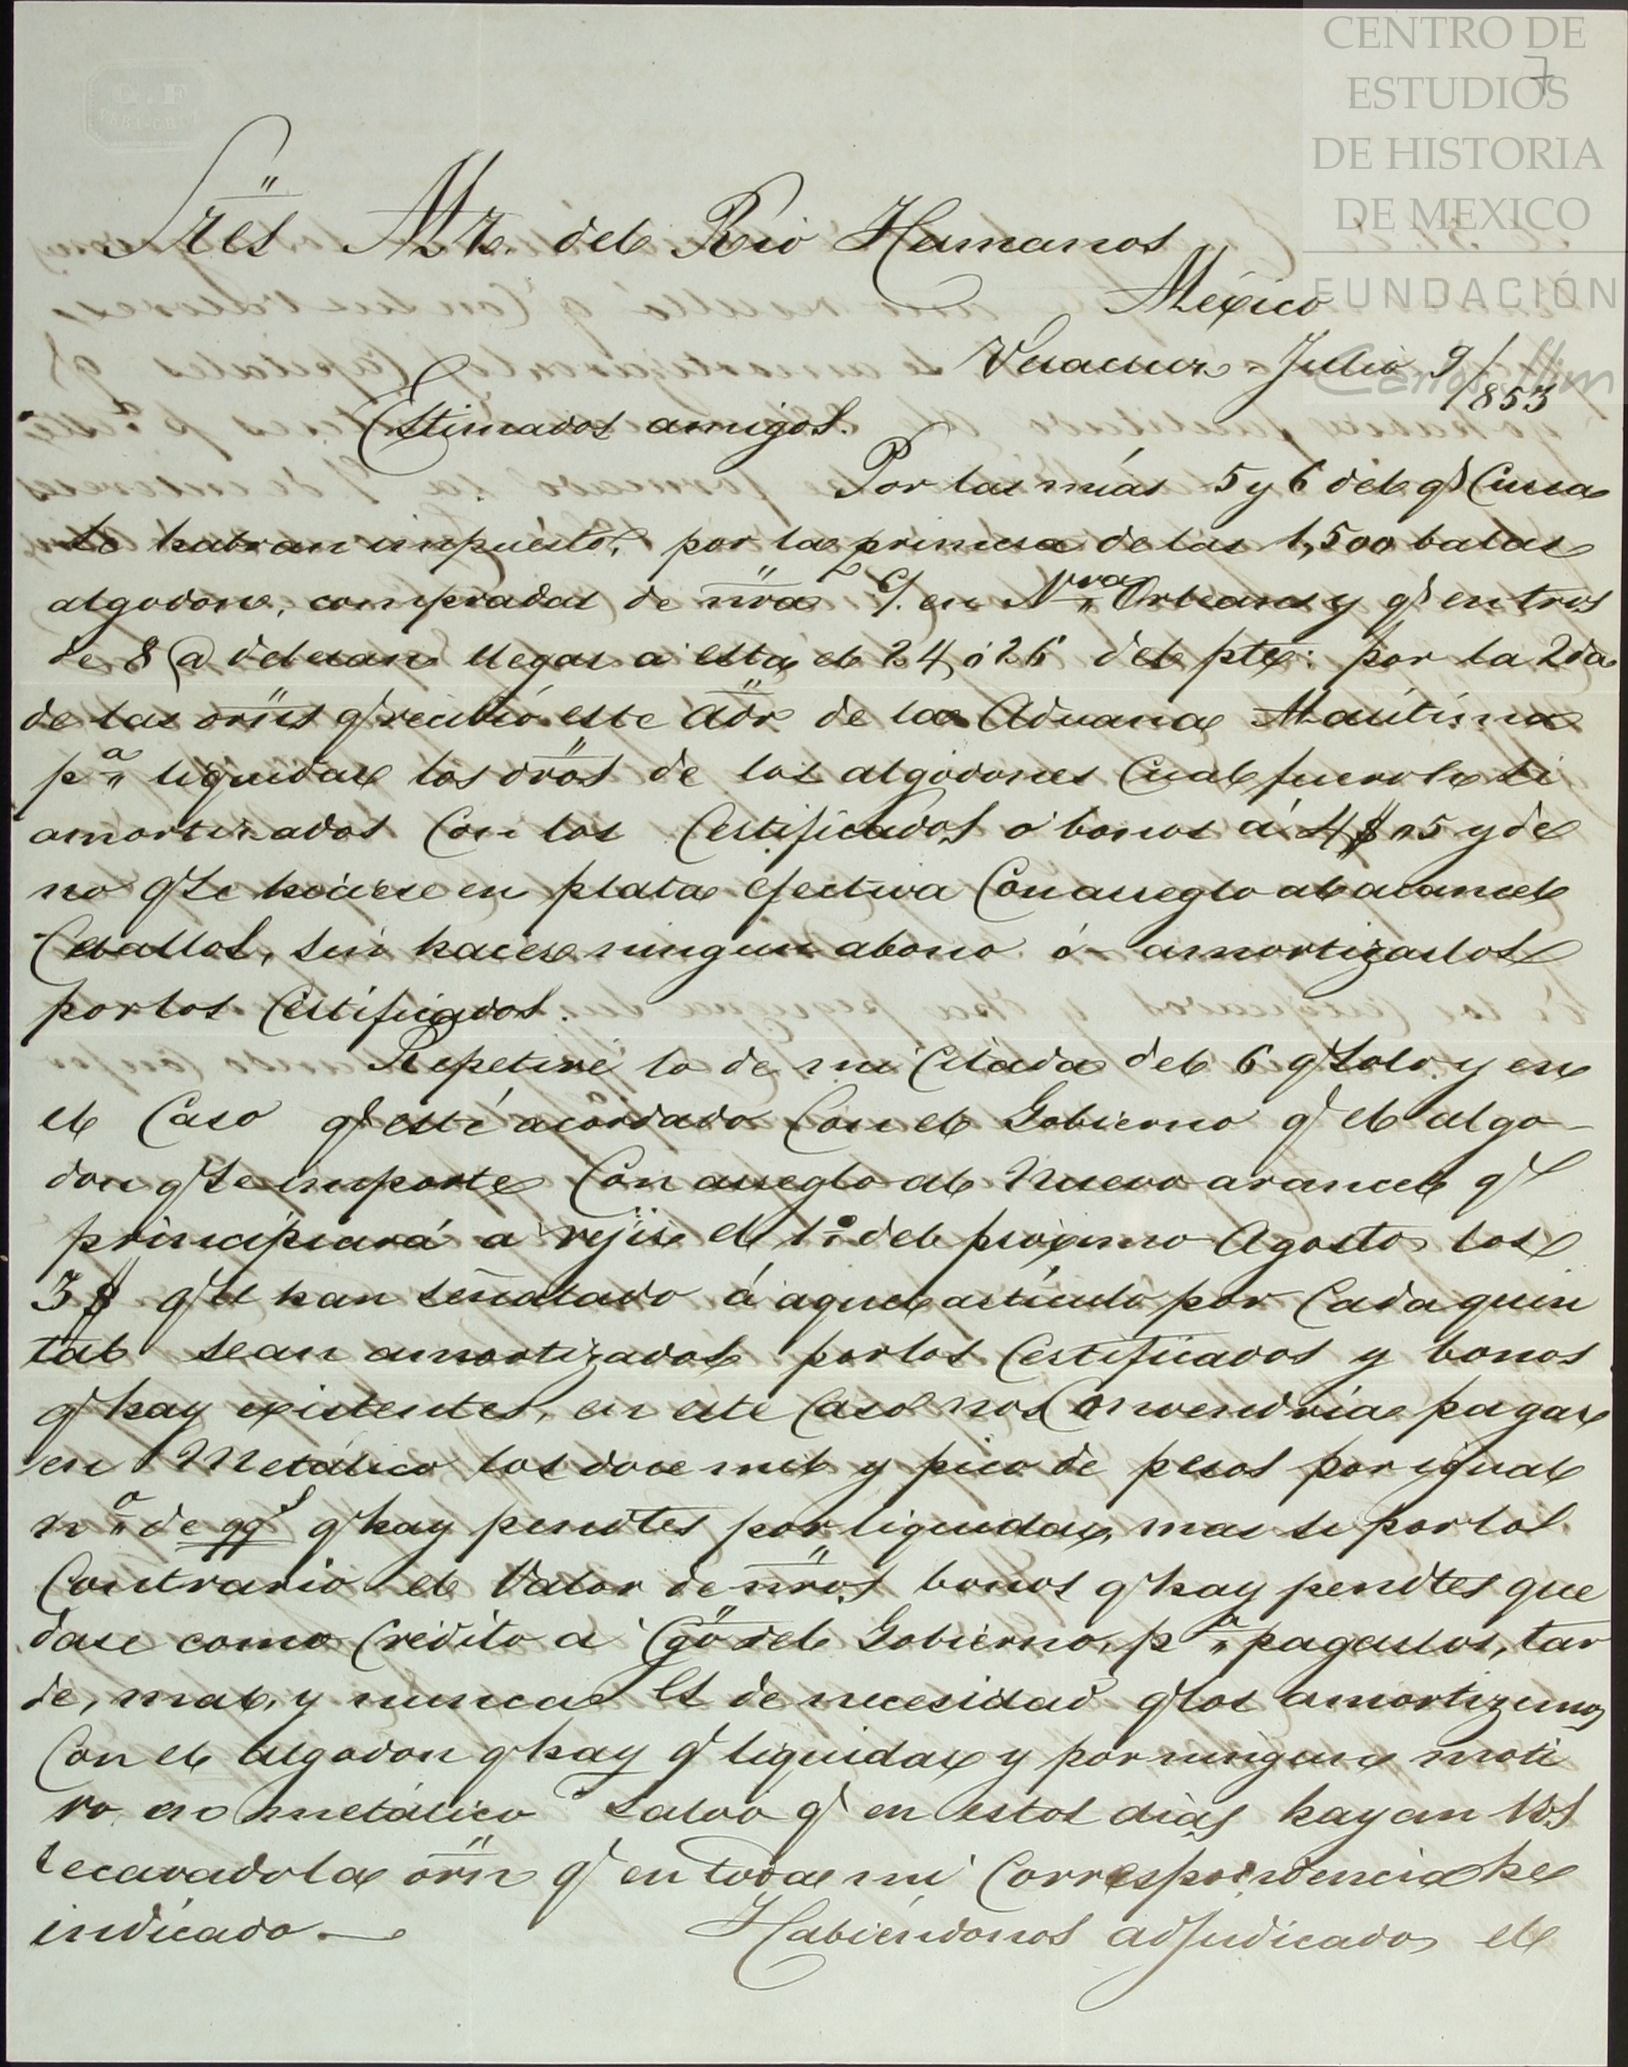 CENTRO DE
ESTUDIOS
DE HISTORIA
DE MEXICO
FUNDACIÓN
Carlos Slim
7
G. F
Sres Mz. del Rio Hermanos
México
Veracruz Julio 9/853
Estimados amigos.
Por las mías 5 y 6 del q^e Cursa
se habran impuésto, por la primera de las 1,500 balas
algodon, compradas de nra C/. en Nva Orleans y q^e entros
de 8 @ deberan llegar a esta el 24 ó 26 del pte: por la 2da
de las orns q^e recibió este Adr de la Aduana Maritima
p^a liquidar los dros de los algodones Cual fueron si
amortizados Con los Certificados o bonos á 4$ 05 y de
no q^e se hiciese en plata efectiva Con arreglo al arancel
Ceballos, sin hacer ningun abono ó amortizarlos
por los Certificados.
Repetiré lo de mi Citada del 6 q^e solo y en
el Caso q^e esté acordado Con el Gobierno q^e el algo-
don q^e se importe Con arreglo al Nuevo arancel q^e
principiará a rejir el 1.º del proximo Agosto los
3$ q^e le han señalado á aquel artículo por Cada quin
tal sean amortizados por los Certificados y bonos
q^e hay existentes, en este Caso nos Convendria pagar
en Metálico los doce mil y pico de pesos por igual
n^o de qq^s q^e hay pendtes por liquidar, mas si por lo
Contrario el Valor de nros bonos q^e hay pendtes que
dase como Credito a Cgo del Gobierno, p^a pagarlos, tar
de, mal, y nunca Es de necesidad q^e los amortizemos
Con el algodon q^e hay q^e liquidar y por ningun moti
vo en metálico Salvo q^e en estos dias hayan VdS
recavado la orn q^e en toda mi Correspondencia he
indicado.—
Habiéndonos adjudicado el